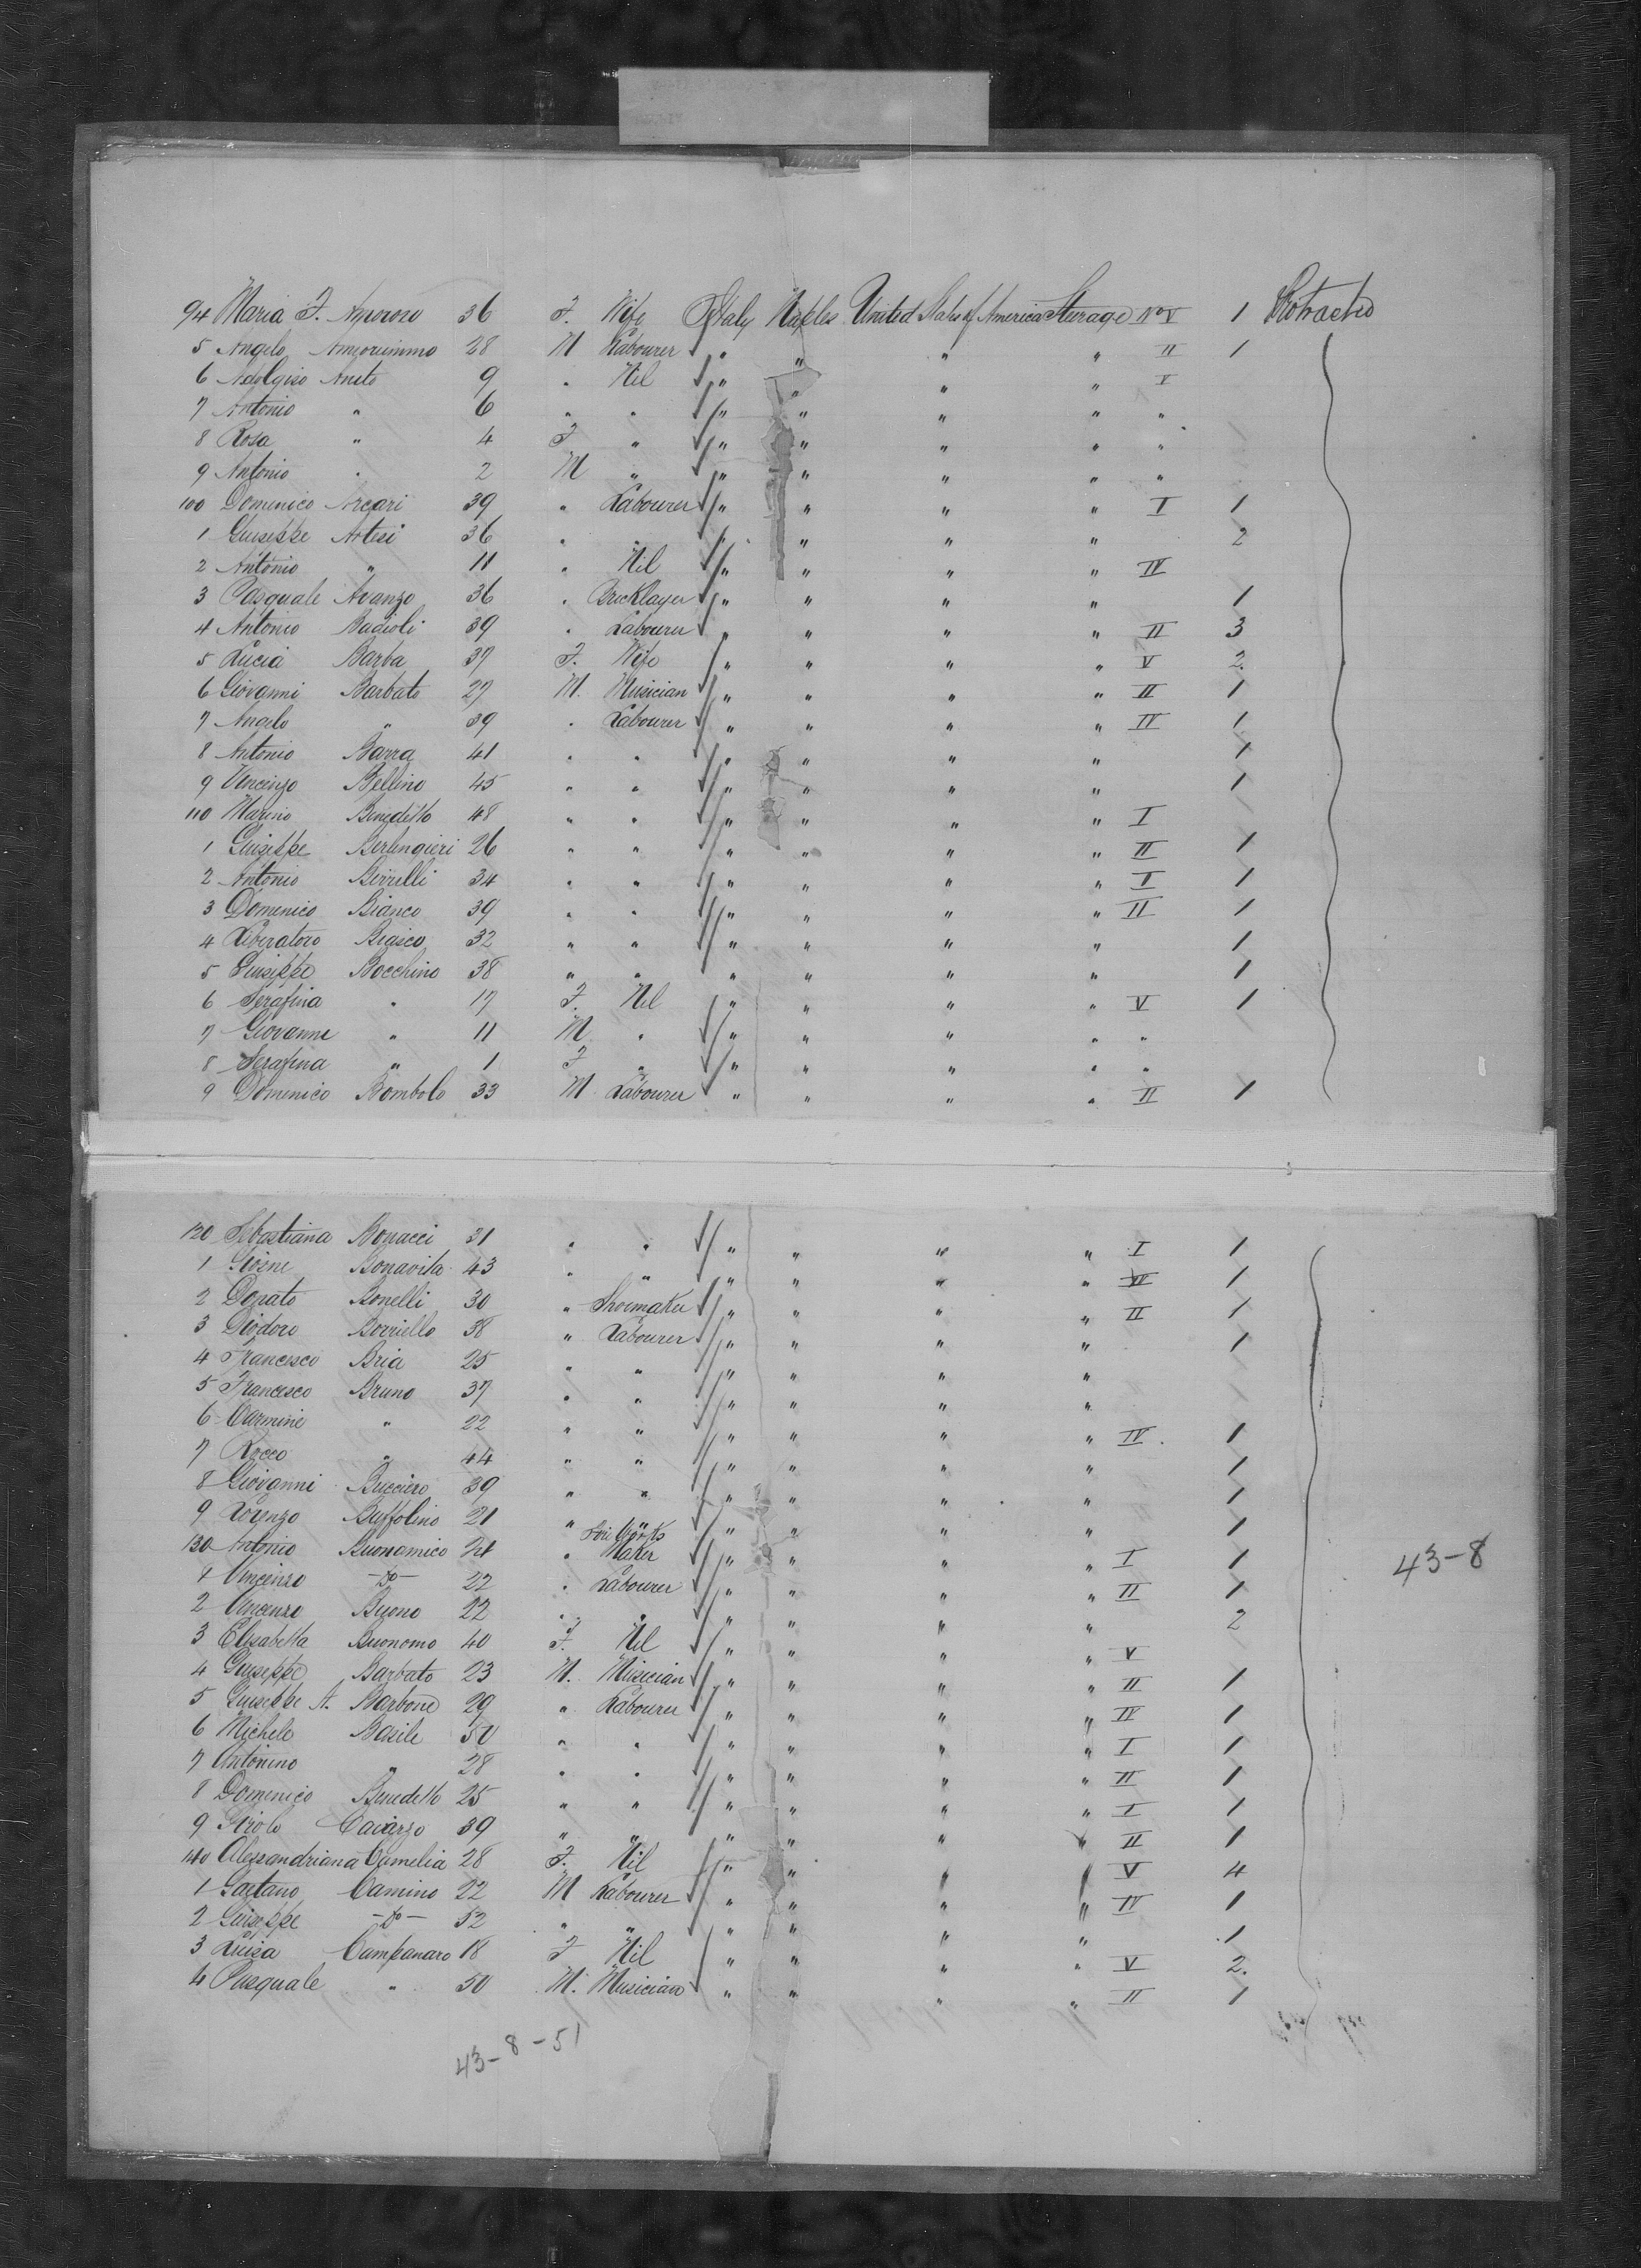 94 Maria F. Amoroso 36 F. Wife Italy Naples United States of America Sterage No V 1 Protracted
5 Angelo Amorunimo 28 M Labourer " " " " II 1
6 Adolgiso Aneto 9 " Nil " " " " V
7 Antonio " 6 " " " " " " "
8 Rosa " 4 F " " " " " "
9 Antonio " 2 M " " " " " "
100 Domenico Arcari 39 " Labourer " " " " I 1
1 Guiseppe Artesi 36 " " " " " " 2
2 Antonio " 11 " Nil " " " " IV
3 Pasquale Avanzo 36 " Bricklayer " " " " 1
4 Antonio Badioli 39 " Labourer " " " " II 3
5 Lucia Barba 37 F. Wife " " " " V 2.
6 Giovanni Barbato 27 M. Musician " " " " II 1
7 Angelo " 39 " Labourer " " " " IV 1
8 Antonio Barra 41 " " " " " " 1
9 Vincenzo Bellino 45 " " " " " " 1
110 Marino Benedetto 48 " " " " " " I
1 Guiseppe Berlingieri 26 " " " " " " II 1
2 Antonio Berrelli 34 " " " " " " I 1
3 Domenico Bianco 39 " " " " " " II 1
4 Liberatoro Biasco 32 " " " " " " 1
5 Guiseppe Bocchino 38 " " " " " " 1
6 Serafina " 17 F. Nil " " " " V 1
7 Giovanni " 11 M " " " " " "
8 Serafina " 1 F " " " " " "
9 Domenico Bombolo 33 M Labourer " " " " II 1
120 Sebastiana Bonacci 31 " " " " " " I 1
1 Giosne Bonavita 43 " " " " " " IV 1
2 Donato Bonelli 30 " Shoemaker " " " " II 1
3 Diodoro Borriello 38 " Labourer " " " " 1
4 Francesco Bria 25 " " " " " "
5 Francesco Bruno 37 " " " " " "
6 Carmine " 22 " " " " " " IV 1
7 Rocco " 44 " " " " " " 1
8 Giovanni Bucciero 39 " " " " " " 1
9 Lorenzo Buffolino 21 " " " " " " 1
130 Antonio Buonamico 21 " Fire Works Maker " " " " I 1
1 Vincenzo -do- 22 " Labourer " " " " II 1
2 Vincenzo Buono 22 " " " " " " 2
3 Elisabetta Buonomo 40 F. Nil " " " " V
43-8
4 Guiseppe Barbato 23 M. Musician " " " " II 1
5 Guiseppe A. Barbone 29 " Labourer " " " " IV 1
6 Michele Basile 50 " " " " " " I 1
7 Antonino " 28 " " " " " " II 1
8 Domenico Benedetto 25 " " " " " " I 1
9 Girolo Caiarzo 39 " " " " " " II 1
140 Alessandriana Camelia 28 F. Nil " " " " V 4
1 Gaetano Camino 22 M Labourer " " " " IV 1
2 Guiseppe -do- 52 " " " " " " 1
3 Luisa Campanaro 18 F Nil " " " " V 2.
4 Pasquale " 50 M. Musician " " " " II 1
43-8-51